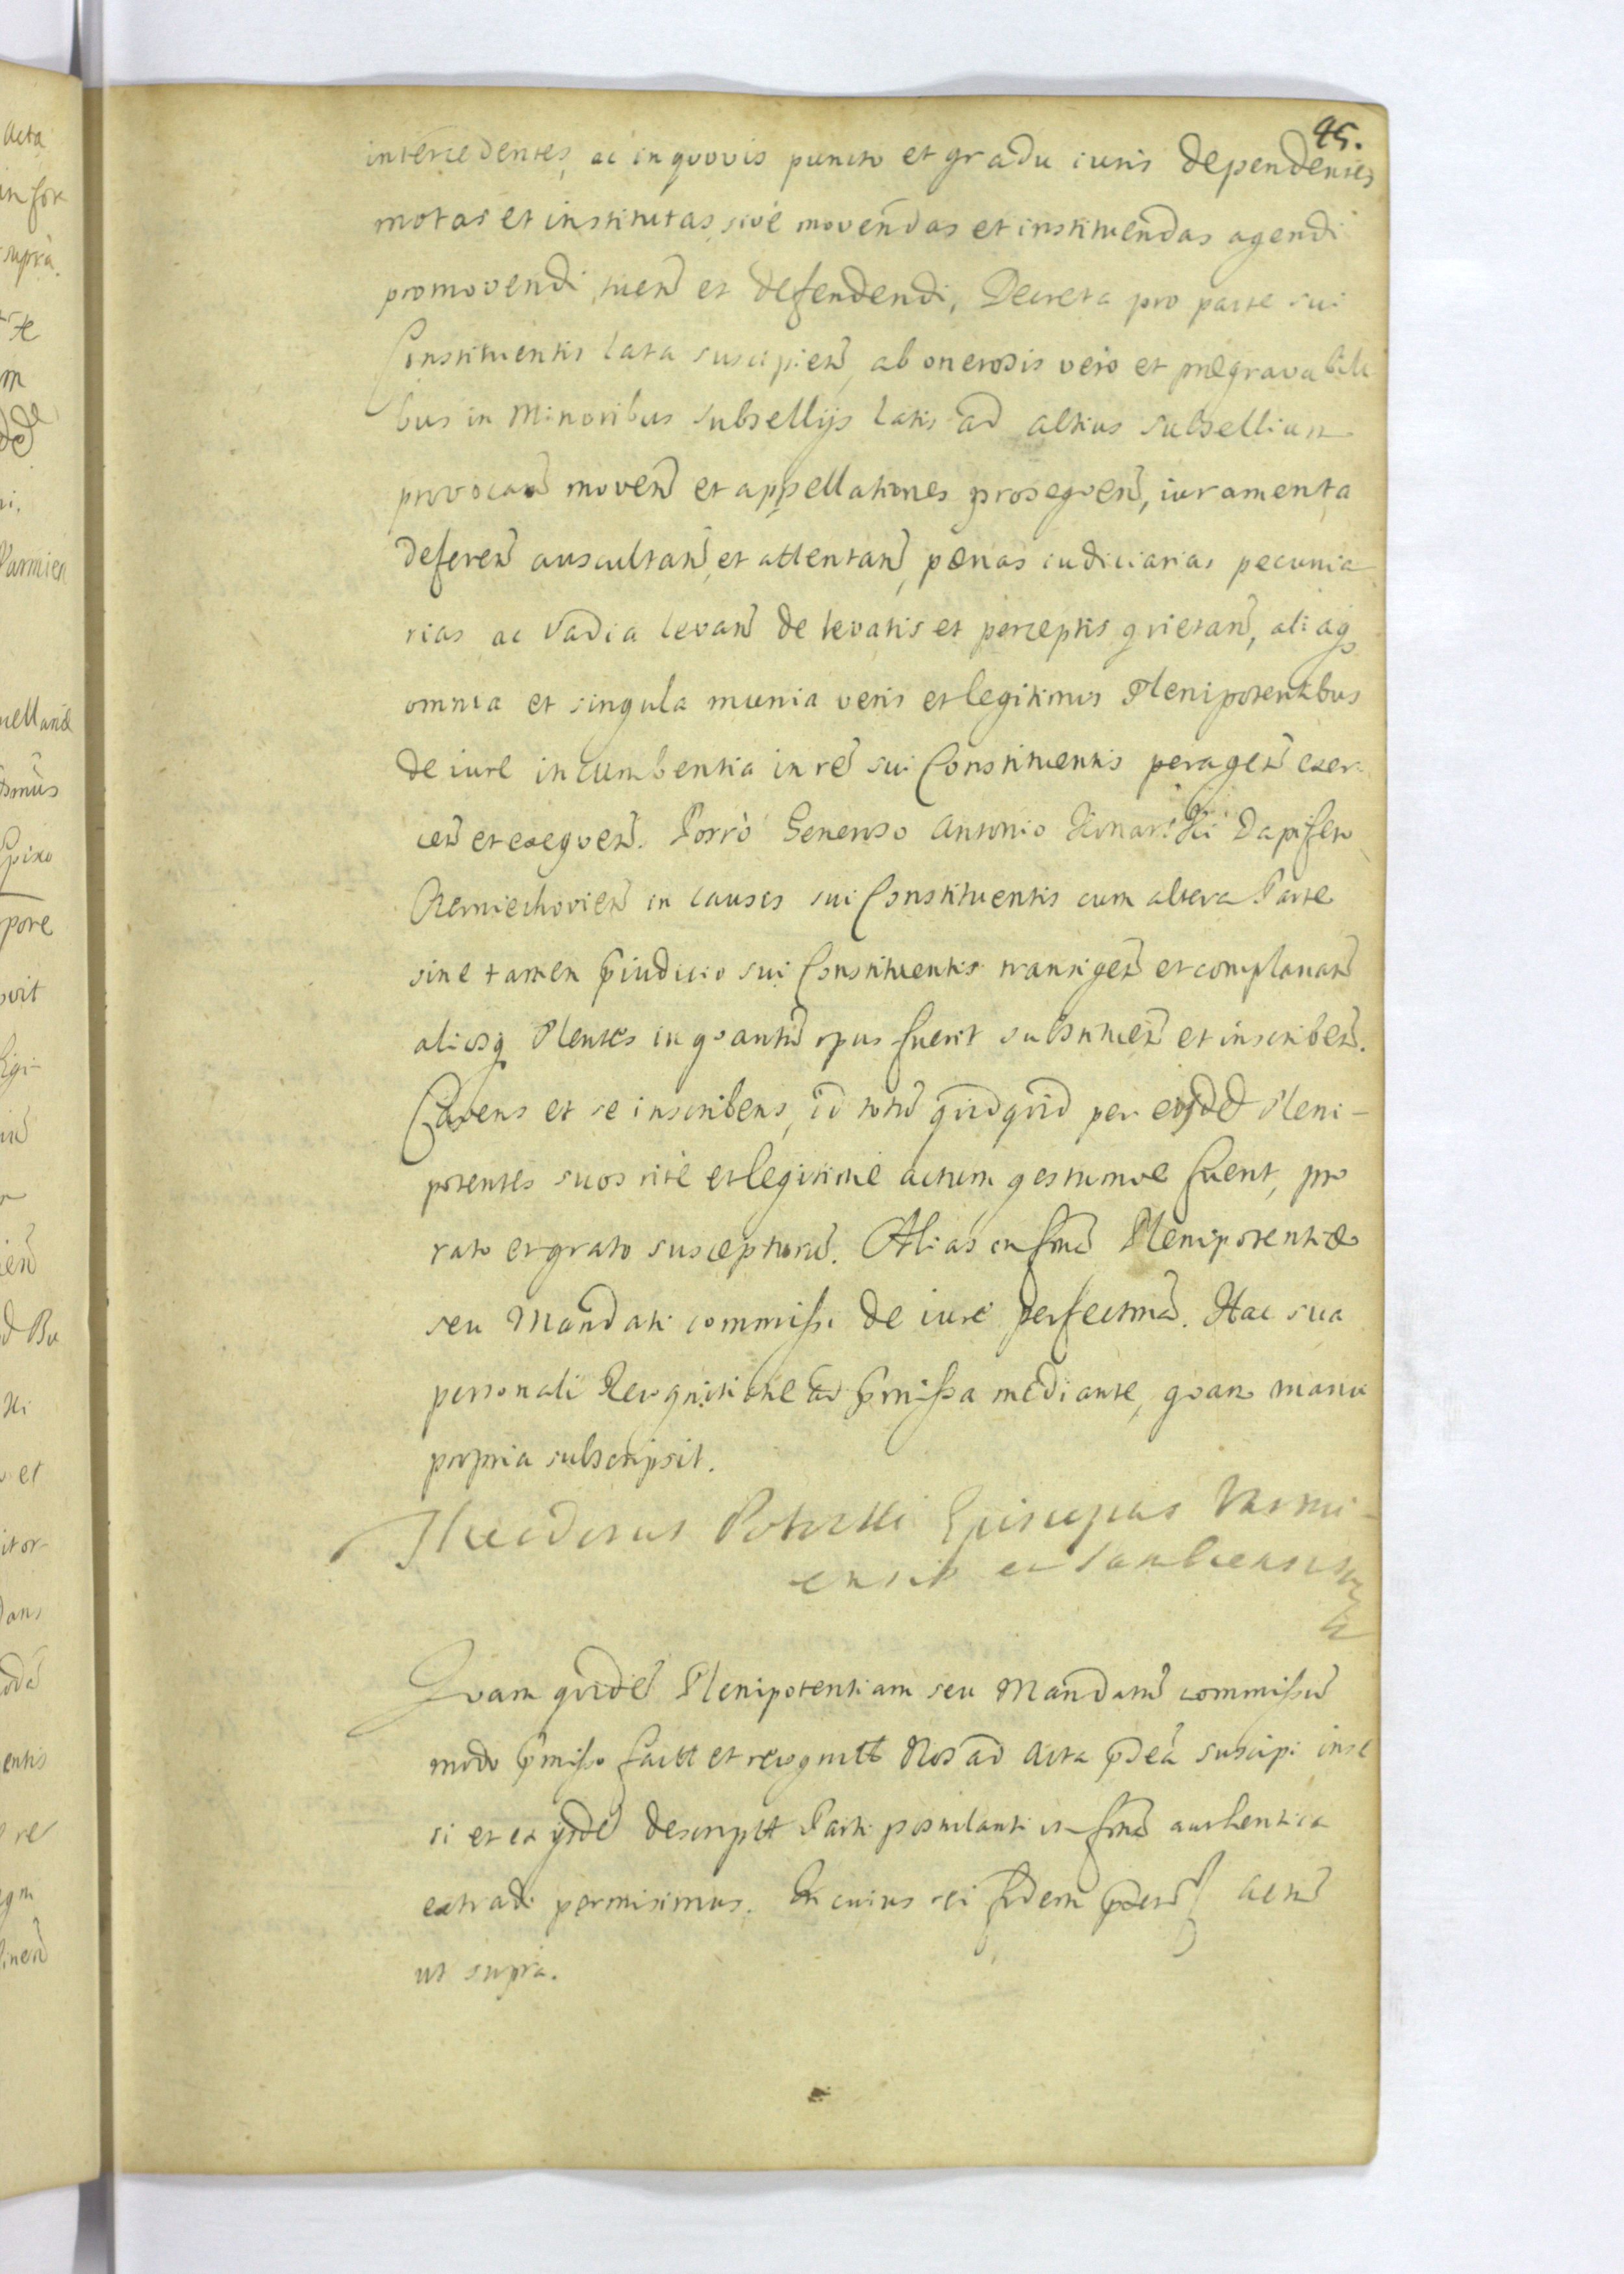 45.
intercedentes, ac in quovis puncto et gradu iuris dependentes
motas et institutas, sive movendas et instituendas agendi
promovendi, tuen̄ et defendendi, Decreta pro parte sui
Constituentis lata suscipien̄, ab onerosis vero et prægravabili
bus in Minoribus Subsellijs latis ad altius subsellium
provocan̄ moven̄ et appellationes prosequen̄, iuramenta
deferen̄ auscultan̄, et attentan̄, pœnas iudiciarias pecunia
rias ac vadia levan̄ de levatis et perceptis quietan̄, aliaq
omnia et singula munia veris et legitimis Plenipotentibus
de iure incumbentia in rē sui Constituentis peragen̄ exer
cen̄ et exequen̄. Porrò Generoso Antonio Dapifero
Czerniechovien̄ in causis sui Constituentis cum altera Parte
sine tamen p̄iudicio sui Constituentis transigen̄ et complanan̄
aliosq Plentes in quantū opus fuerit substituen̄ et inscriben̄.
Cavens et se inscribens, id totū quidquid per eosdē Pleni-
potentes suos ritè et legitimè actum gestumve fuerit, pro
rato et grato suscepturū. Alias in formā Plenipotentiæ
seu Mandati commissi de iure perfectissimā. Hac sua
personali Recognitione ad p̄missa mediante, quam manu
propria subscripsit.
Theodorus Potocki Episcopus Varmi-
ensis et Sambiensis
Quam quidē Plenipotentiam seu Mandatū commissū
modo p̄misso factū et recognitū Nos ad Acta p̄dca suscipi inse
ri et ex ijsdē descriptū Parti postulanti in formā authentica
extradi permisimus. In cuius rei fidem Actū
ut supra.
Acta
supra.